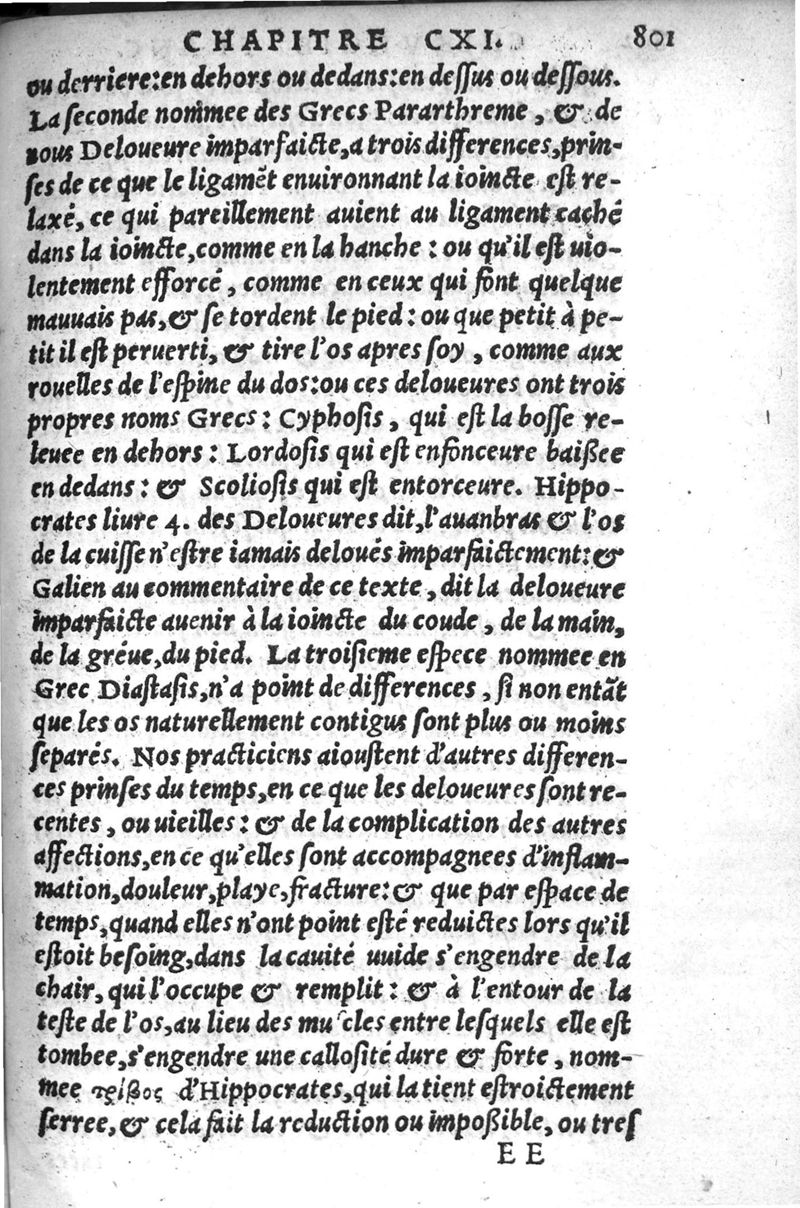 CHAPITRE CXI. 801
ou derriere:en dehors ou dedans:en deſſus ou deſſous.
La ſeconde nommee des Grecs Pararthreme, & de
nous Deloueure imparfaicte,a trois differences,prin-
ſes de ce que le ligamēt enuironnant la ioincte eſt re-
laxé, ce qui pareillement auient au ligament caché
dans la ioincte,comme en la hanche : ou qu'il eſt uio-
lentement efforcé, comme en ceux qui font quelque
mauuais pas,& ſe tordent le pied : ou que petit à pe-
tit il eſt peruerti, & tire l'os apres ſoy, comme aux
rouelles de l'eſpine du dos:ou ces deloueures ont trois
propres noms Grecs : Cyphoſis, qui eſt la boſſe re-
leuee en dehors : Lordoſis qui eſt enfonceure baißee
en dedans : & Scolioſis qui eſt entorceure. Hippo-
crates liure 4. des Deloueures dit,l'auanbras & l'os
de la cuiſſe n'eſtre iamais deloués imparfaictement:&
Galien au commentaire de ce texte, dit la deloueure
imparfaicte auenir à la ioincte du coude, de la main,
de la gréue,du pied. La troiſieme eſpece nommee en
Grec Diaſtaſis,n'a point de differences, ſi non entāt
que les os naturellement contigus ſont plus ou moins
ſeparés. Nos practiciens aiouſtent d'autres differen-
ces prinſes du temps,en ce que les deloueures ſont re-
centes, ou uieilles : & de la complication des autres
affections,en ce qu'elles ſont accompagnees d'inflam-
mation,douleur,playe,fracture:& que par eſpace de
temps,quand elles n'ont point eſté reduictes lors qu'il
eſtoit beſoing,dans la cauité uuide s'engendre de la
chair, qui l'occupe & remplit : & à l'entour de la
teſte de l'os,au lieu des muſcles entre leſquels elle eſt
tombee,s'engendre une calloſité dure & forte, nom-
mee τρίβος d'Hippocrates,qui la tient eſtroictement
ſerree,& cela fait la reduction ou impoßible, ou treſ
E E